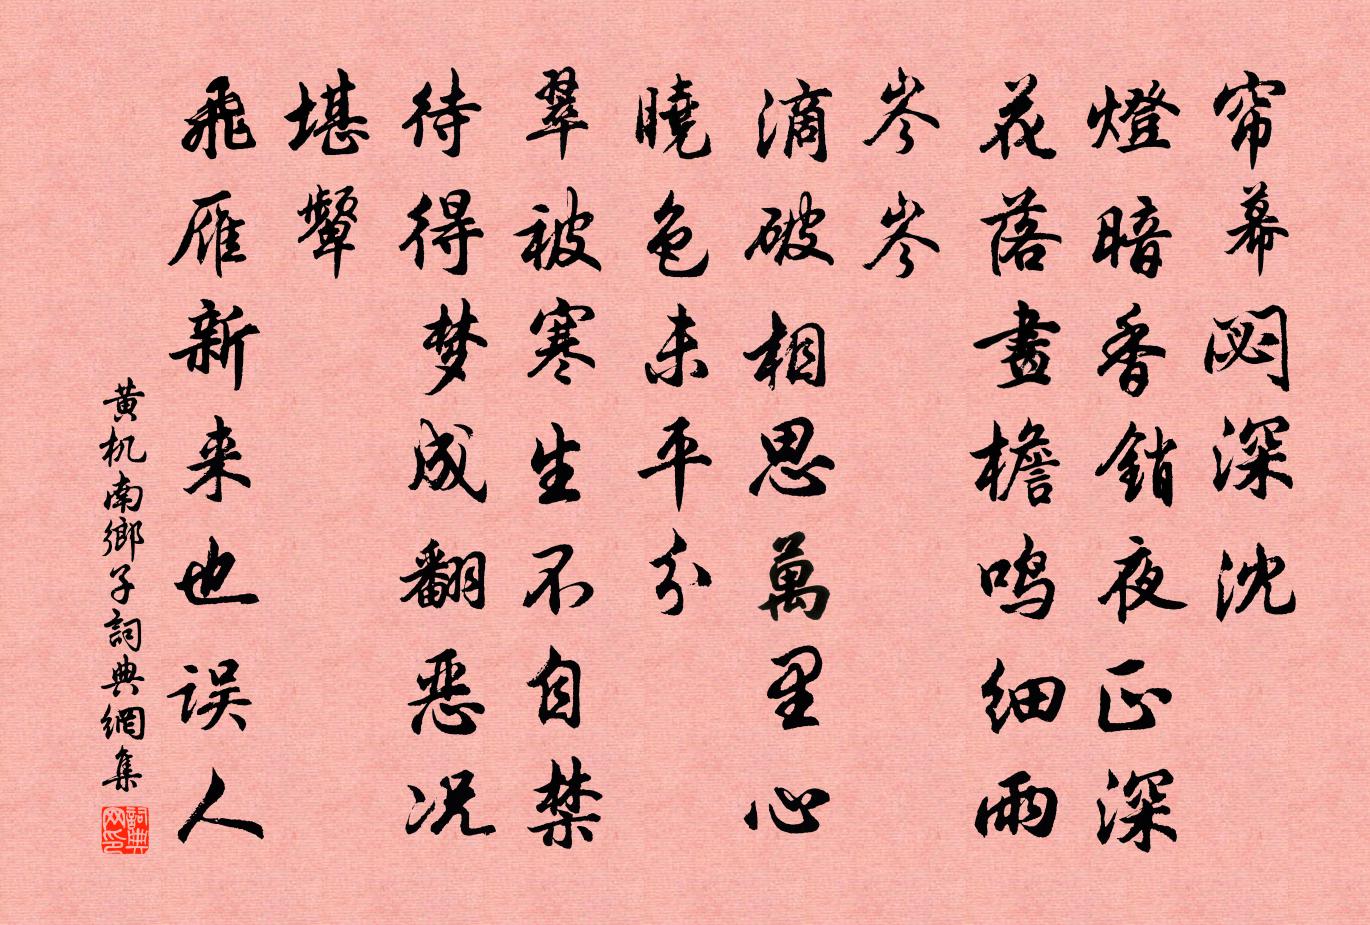 帘幕閟深沈
燈暗香銷夜正深
花落畫檐鸣细雨
岑岑
滴破相思萬里心
曉色未平分
翠被寒生不自禁
待得梦成翻恶况
堪颦
飛雁新来也误人
黄机南鄉子詞典網集
詞典网印